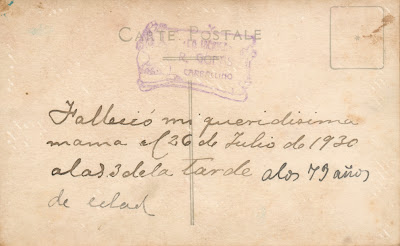 CARTE POSTALE
Falleció mi queridisima
mama el 26 de Julio de 1930
a las 3 de la tarde a los 79 años
de edad